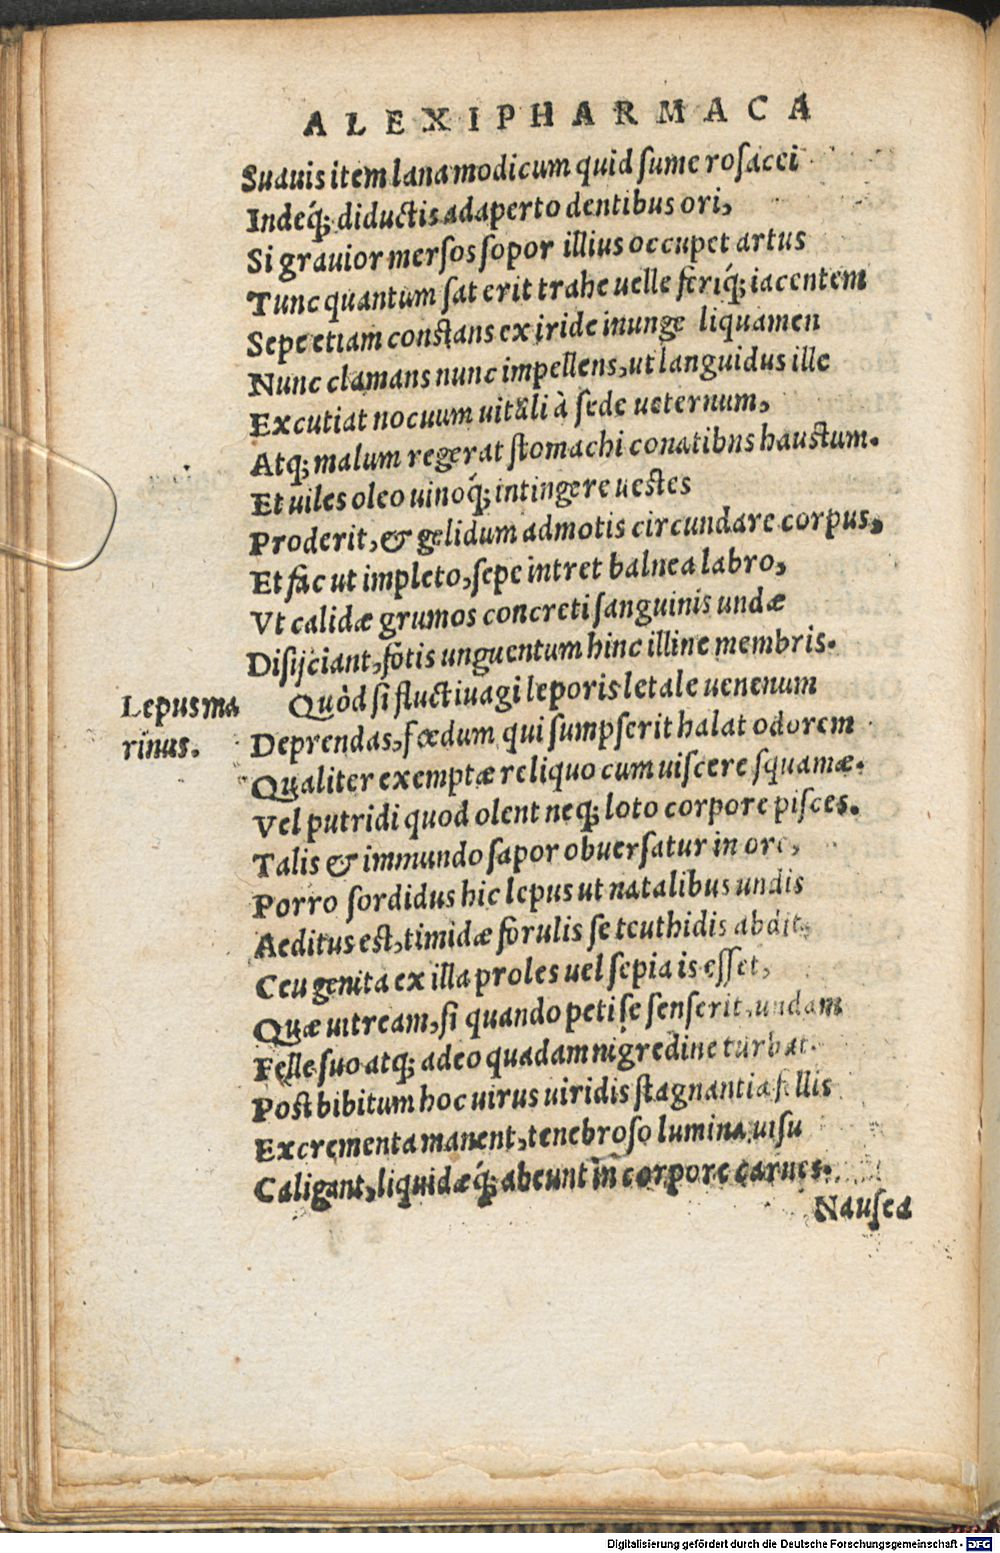 ALEXIPHARMACA
Suauis item lana modicum quid sume rosacei
Indeq́; diductis adaperto dentibus ori,
Si grauior mersos sopor illius occupet artus
Tunc quantum sat erit trahe uelle feriq́; iacentem
Sepe etiam constans ex iride inunge liquamen
Nunc clamans nunc impellens, ut languidus ille
Excutiat nocuum uitali à sede ueternum,
Atq; malum regerat stomachi conatibns haustum.
Et uiles oleo uinoq́; intingere uestes
Proderit, & gelidum admotis circundare corpus,
Et fac ut impleto, sepe intret balnea labro,
Vt calidæ grumos concreti sanguinis undæ
Disijciant, fotis unguentum hinc illine membris.
Lepus ma
rinus.
Quòd si fluctiuagi leporis letale uenenum
Deprendas, fœdum qui sumpserit halat odorem
Qualiter exemptæ reliquo cum uiscere squamæ.
Vel putridi quod olent neq; loto corpore pisces.
Talis & immundo sapor obuersatur in ore,
Porro sordidus hic lepus ut natalibus undis
Aeditus est, timidæ forulis se teuthidis abdit,
Ceu genita ex illa proles uel sepia is esset,
Quæ uitream, si quando peti se senserit, undam
Felle suo atq; adeo quadam nigredine turbat.
Post bibitum hoc uirus uiridis stagnantia fellis
Excrementa manent, tenebroso lumina uisu
Caligant, liquidæq́; abeunt in corpore carnes.
Nausea
Digitalisierung gefördert durch die Deutsche Forschungsgemeinschaft - DFG